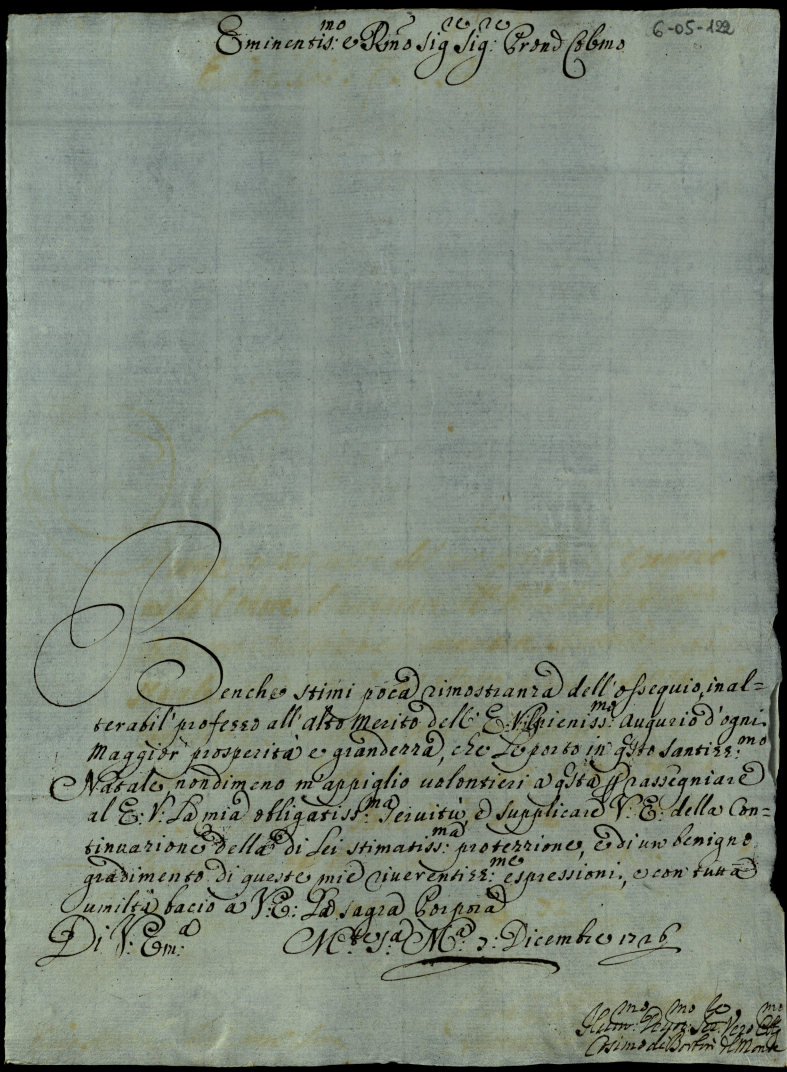 6-05-122
Eminentis:mo e Rmo Sig:re Sig:re Prone Colmo
Benche stimi poca rimostranza dell'ossequio, inal=
terabil' professo all'alto Merito dell' E: V: il pieniss:mo Augurio d'ogni
Maggior prosperità e grandezza, che Le porto in qsto santiss:mo
Natale, nondimeno m'appiglio volontieri a qsta p rassegniare
al E: V: La mia obligatiss:ma servitù, e supplicare V: E: della Con=
tinuazione della di Lei stimatiss:ma protezzione, e di un benigno
gradimento di queste mie riverentiss:me espressioni, e con tutta
umiltà bacio à V: E: La sagra Porpora
Di V: Em:a M:te S:a M:a 7: Dicembre 1726
Humo: Devo: Ser:re Vero Obbmo
Cosimo del Monte